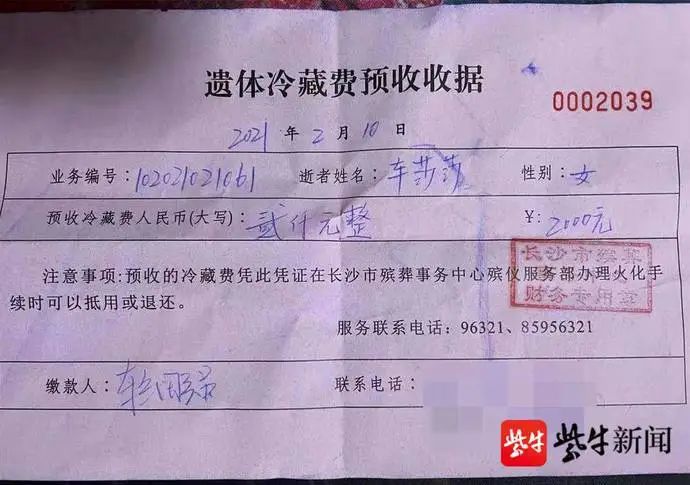 遗体冷藏费预收收据
0002039
2021 年 2 月 10 日
业务编号:102021021061 逝者姓名:车莎莎 性别:女
预收冷藏费人民币(大写):贰仟元整 ¥:2000元
注意事项:预收的冷藏费凭此凭证在长沙市殡葬事务中心殡仪服务部办理火化手
续时可以抵用或退还。
长沙市殡葬
财务专用章
服务联系电话:96321、85956321
缴款人: 联系电话:
紫牛 紫牛新闻